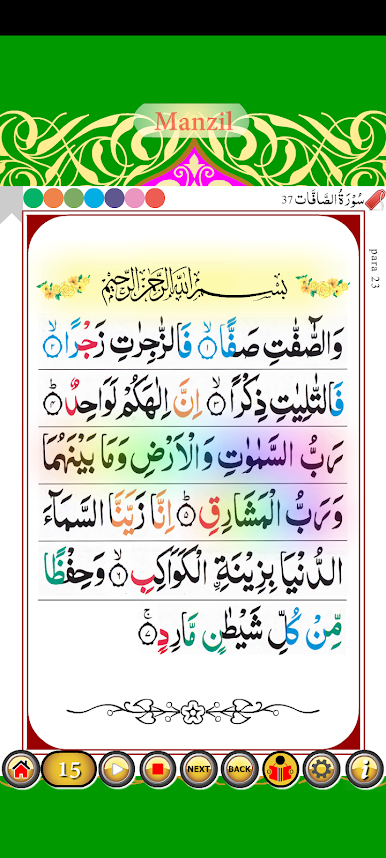 Manzil
37 سُوْرَةُ الصَّافَّات
para 23
بِسْمِ اللّٰهِ الرَّحْمٰنِ الرَّحِيْمِ
وَالصّٰٓفّٰتِ صَفًّا ۙ﴿۱﴾ فَالزّٰجِرٰتِ زَجْرًا ۙ﴿۲﴾
فَالتّٰلِيٰتِ ذِكْرًا ۙ﴿۳﴾ اِنَّ اِلٰهَكُمْ لَوَاحِدٌ ؕ﴿۴﴾
رَبُّ السَّمٰوٰتِ وَالْاَرْضِ وَمَا بَيْنَهُمَا
وَرَبُّ الْمَشَارِقِ ؕ﴿۵﴾ اِنَّا زَيَّنَّا السَّمَآءَ
الدُّنْيَا بِزِيْنَةِ ۨالْكَوَاكِبِ ۙ﴿۶﴾ وَحِفْظًا
مِّنْ كُلِّ شَيْطٰنٍ مَّارِدٍ ۚ﴿۷﴾
15
NEXT
BACK
i